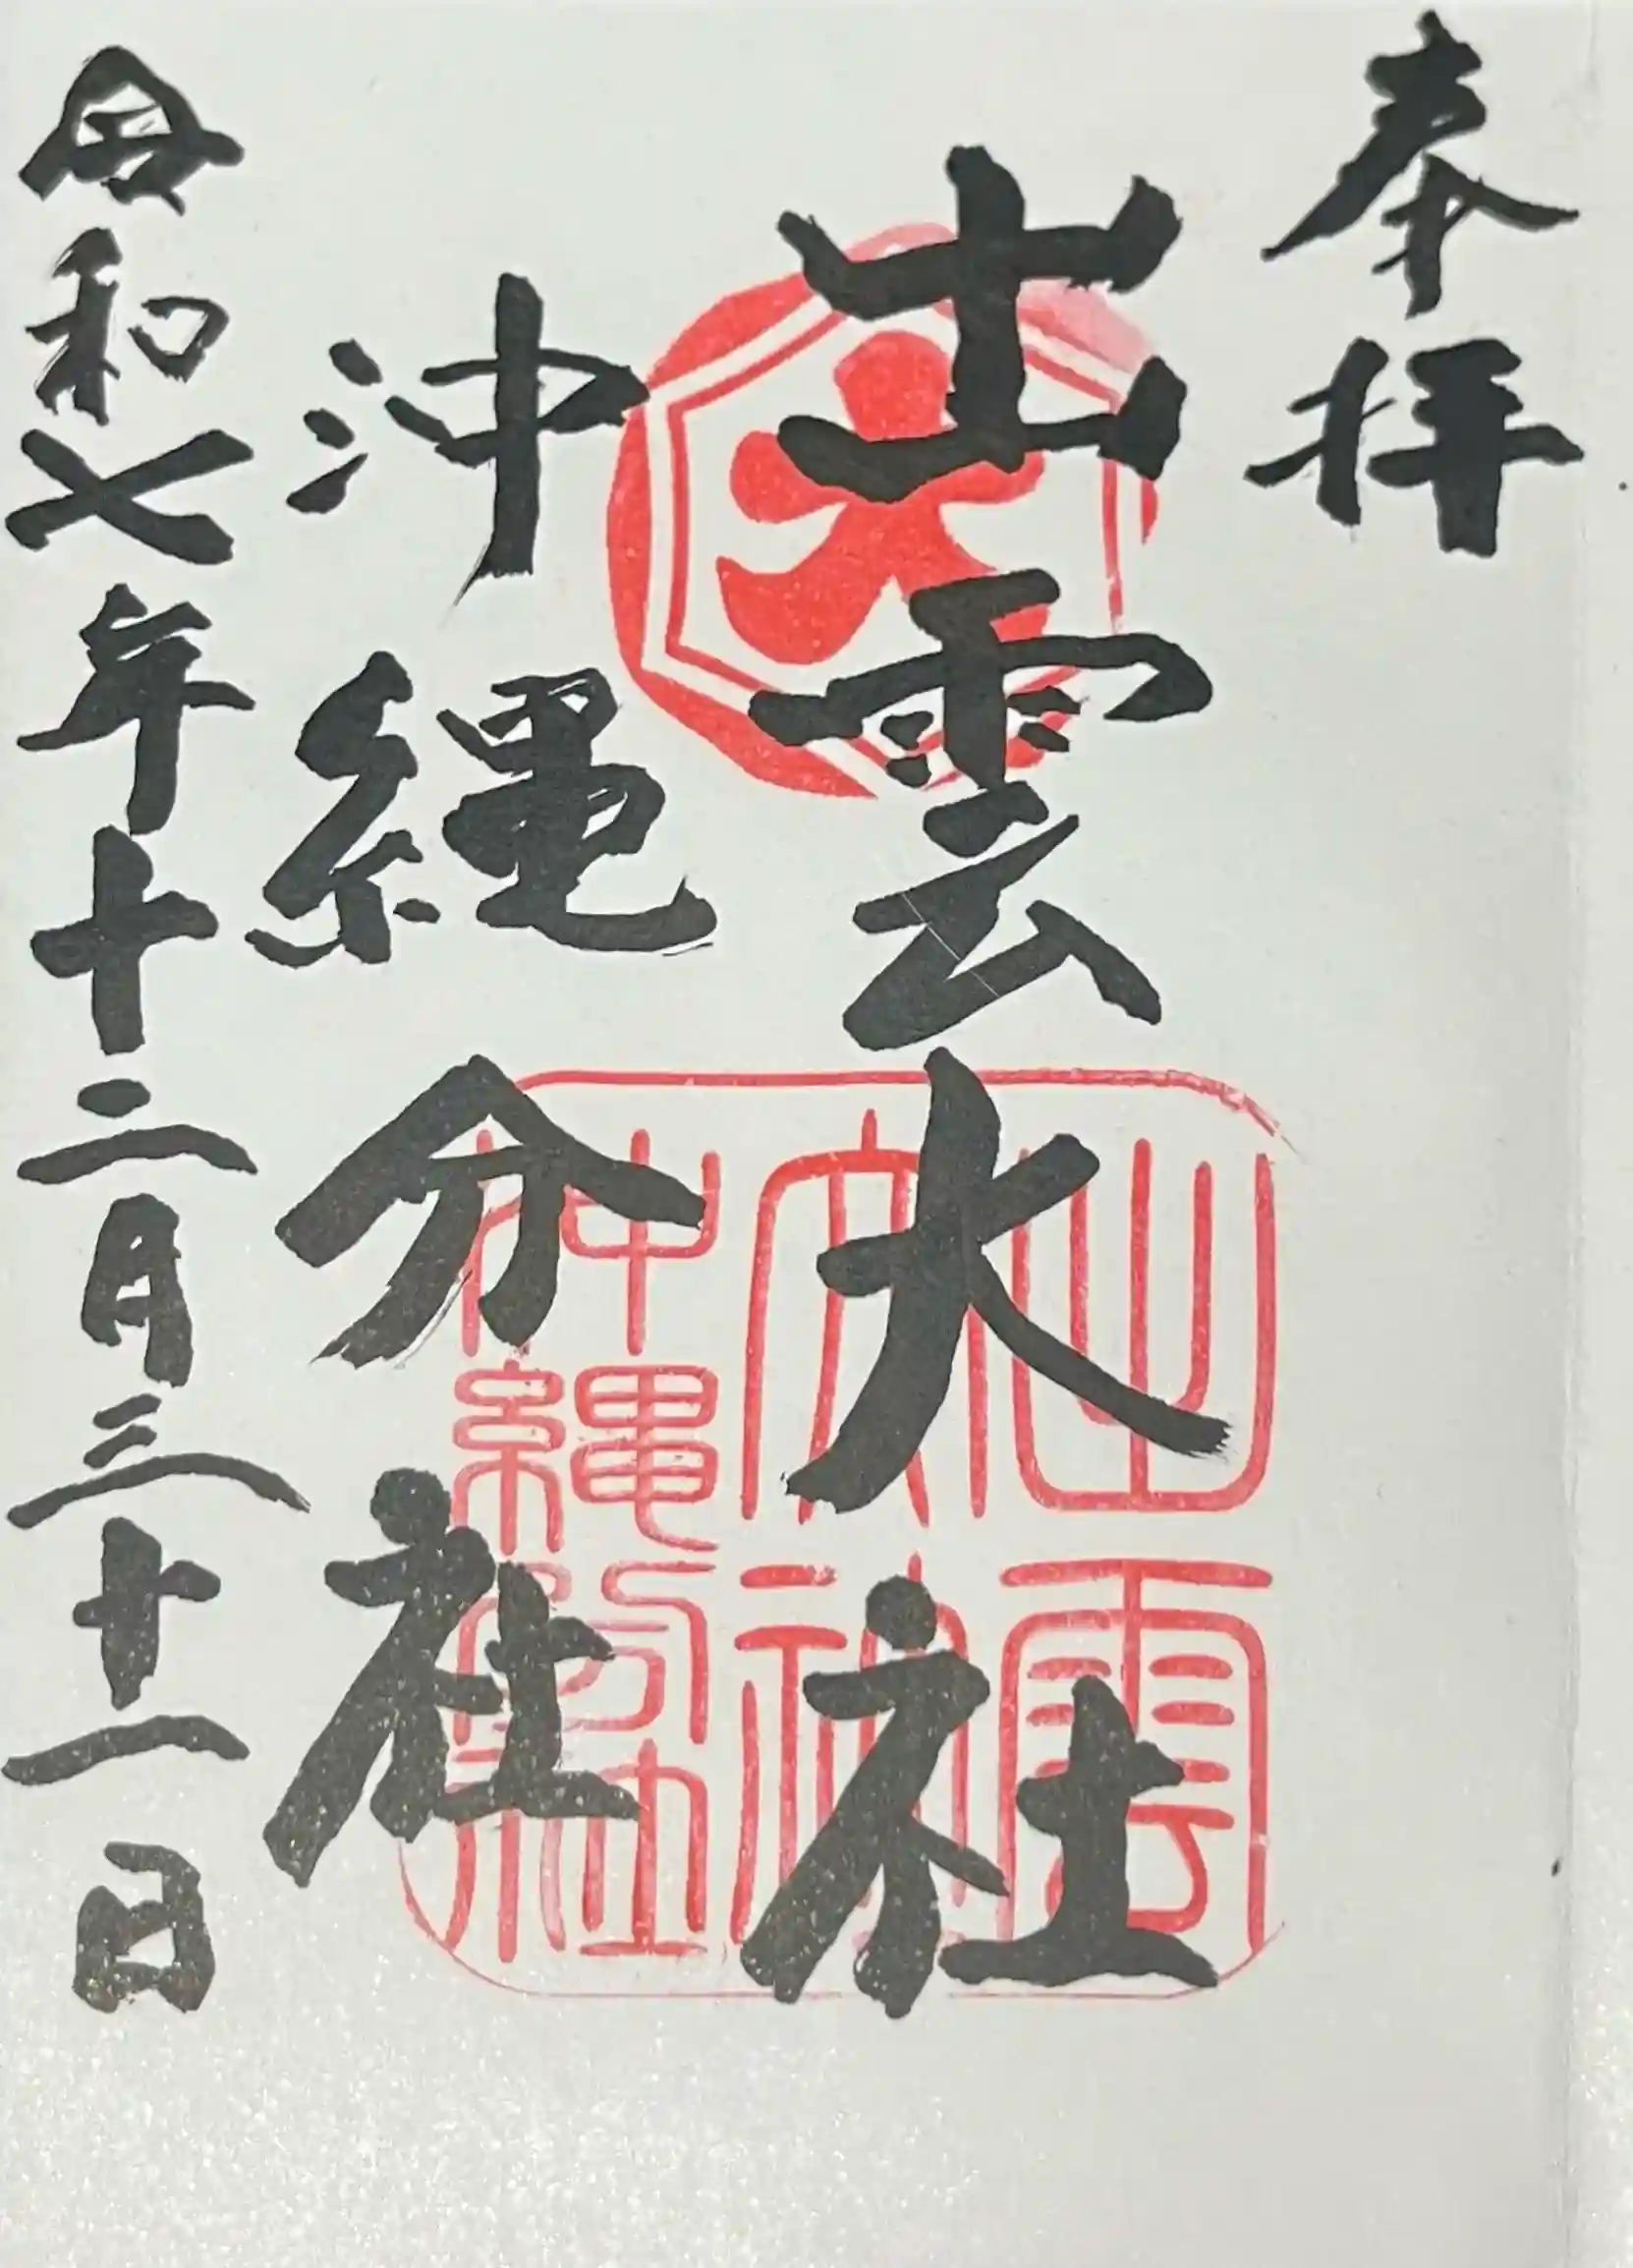 奉拝
出雲大社
沖縄分社
令和七年十二月三十一日
大
出雲
大社
沖縄分社